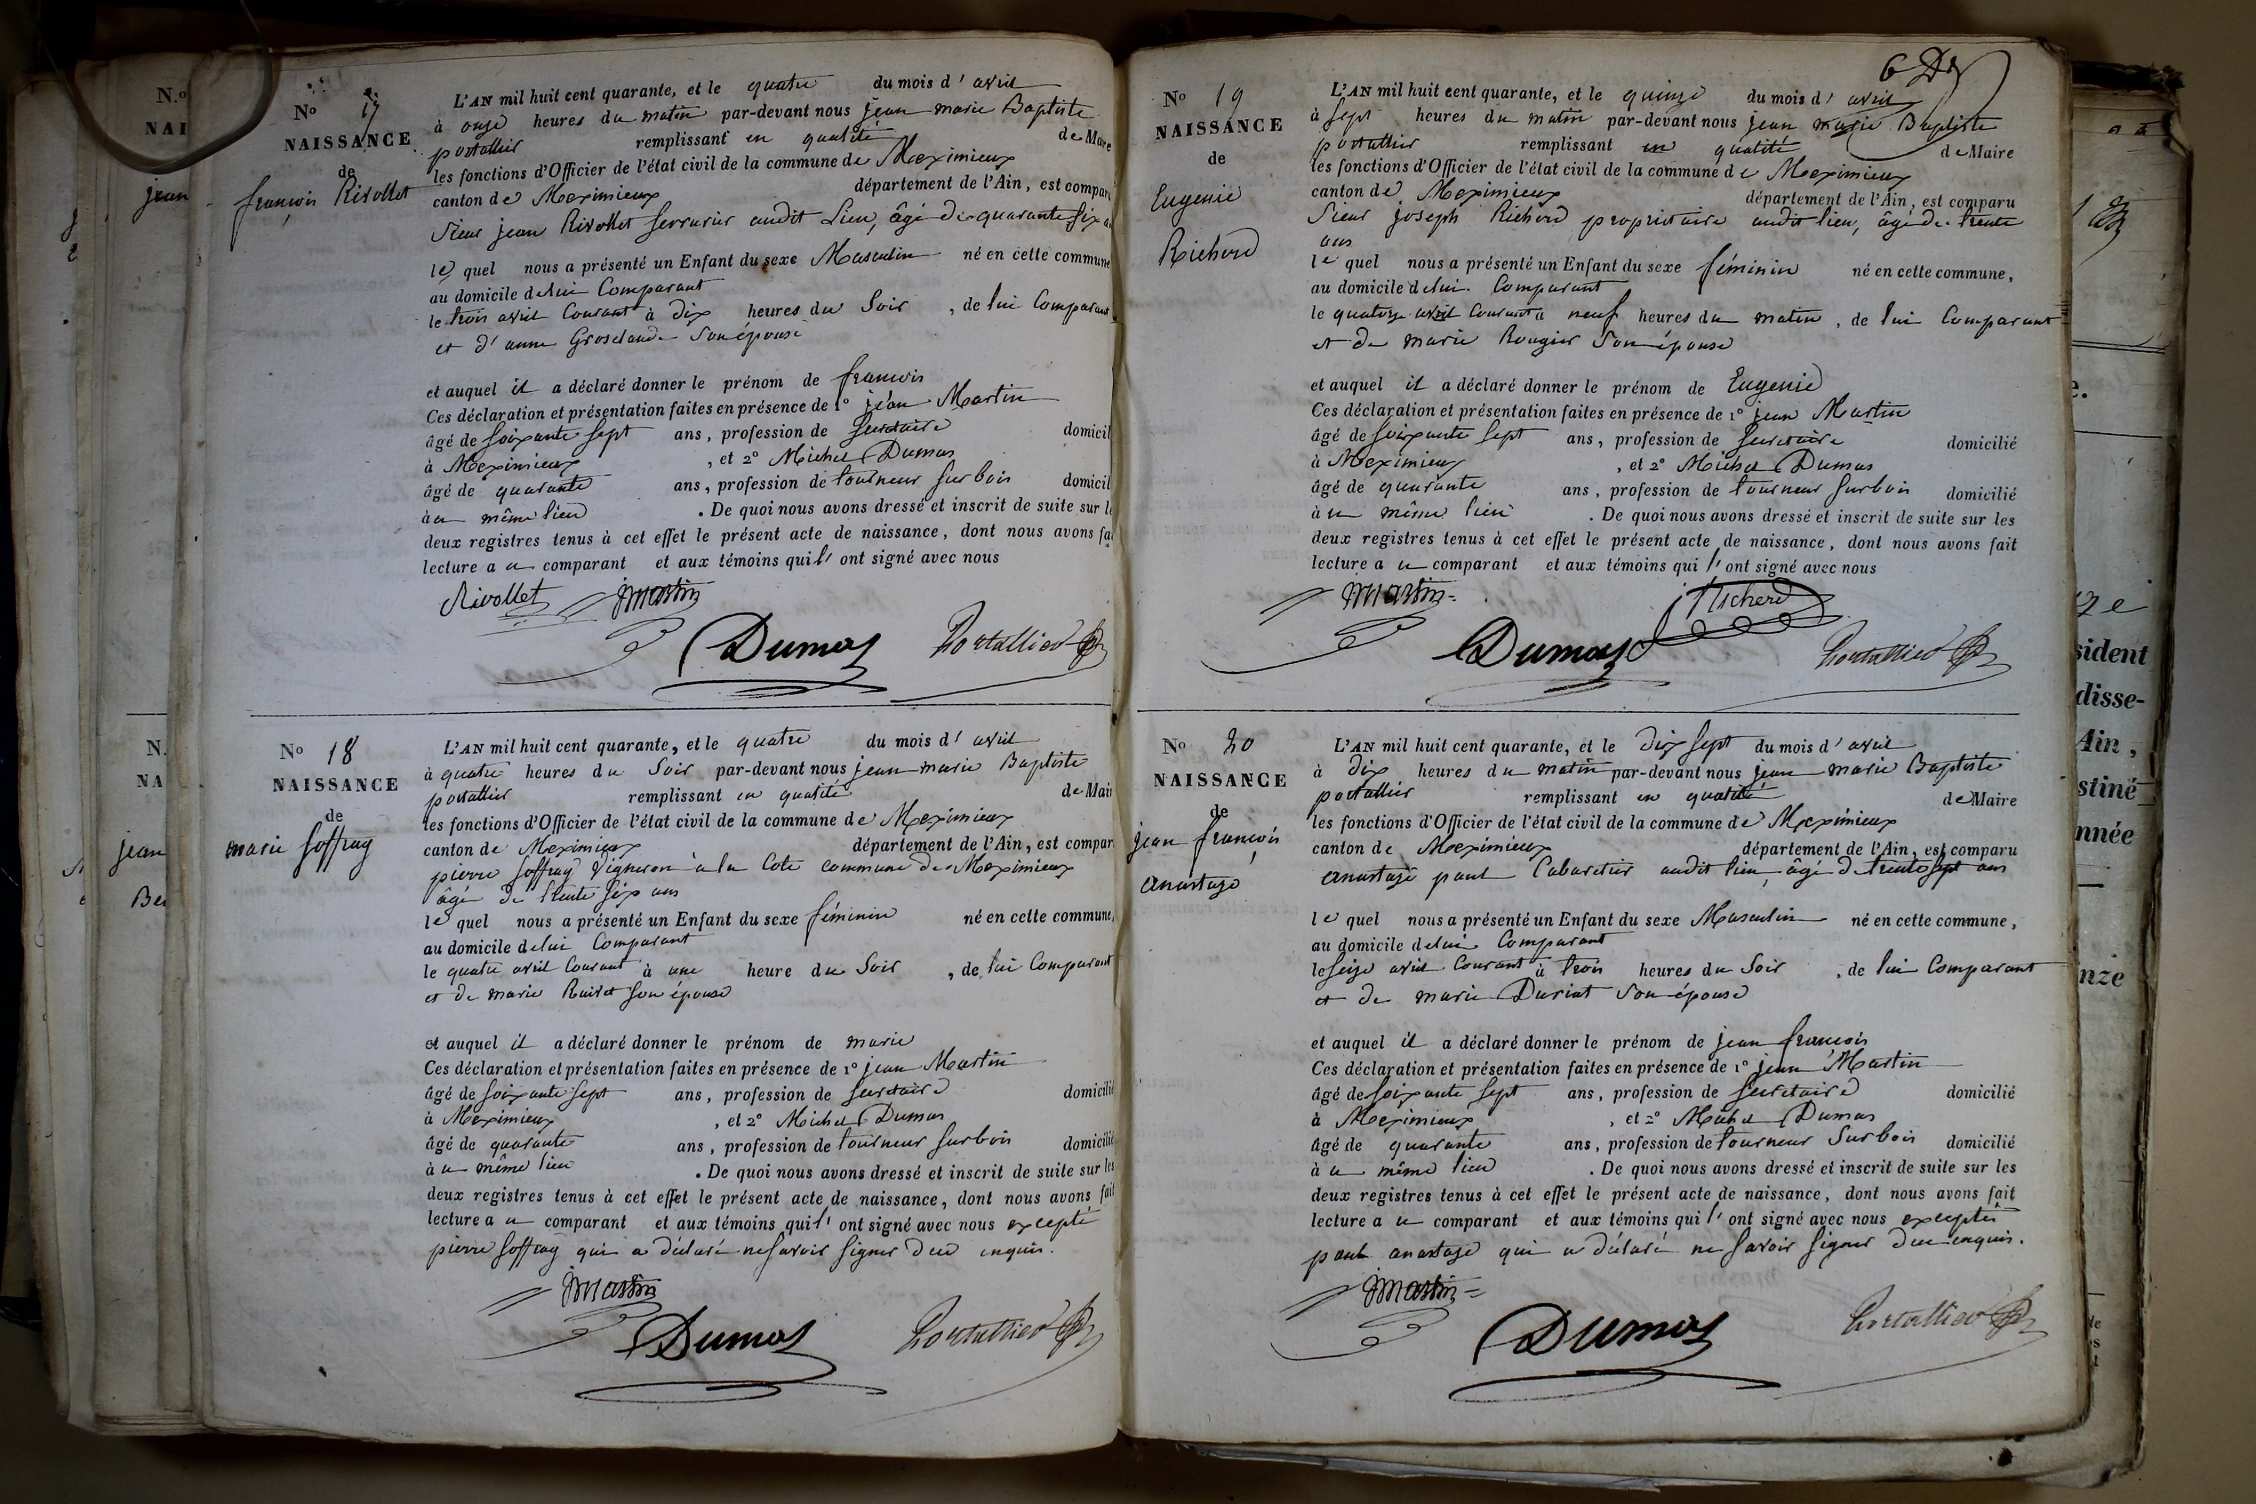 N.º
NAI
jean
N.
NA
jean
Bei
Nº 17
NAISSANCE
de
françois Rivollet
L'AN mil huit cent quarante, et le quatre du mois d' avril
à onze heures du matin par-devant nous jean marie Baptiste
portallier remplissant en qualité de Maire
les fonctions d'Officier de l'état civil de la commune de Meximieux
canton de Meximieux département de l'Ain, est comparu
Sieur jean Rivollet Serrurier audit Lieu, âgé de quarante six a
le quel nous a présenté un Enfant du sexe Masculin né en cette commune
au domicile de lui Comparant
le trois avril Courant à dix heures du Soir, de lui Comparant
et d' anne Groselande Son épouse
et auquel il a déclaré donner le prénom de françois
Ces déclaration et présentation faites en présence de 1º jean Martin
âgé de Soixante Sept ans, profession de Secretaire domicil
à Meximieux, et 2º Michel Dumas
âgé de quarante ans, profession de tourneur Sur bois domicil
à u même lieu. De quoi nous avons dressé et inscrit de suite sur le
deux registres tenus à cet effet le présent acte de naissance, dont nous avons fai
lecture a u comparant et aux témoins qui l' ont signé avec nous
Rivollet jmartin
Dumas Portallier
Nº 18
NAISSANCE
de
marie Soffray
L'AN mil huit cent quarante, et le quatre du mois d' avril
à quatre heures du Soir par-devant nous jean marie Baptiste
portallier remplissant en qualité de Mair
les fonctions d'Officier de l'état civil de la commune de Meximieux
canton de Meximieux département de l'Ain, est compar
pierre Soffray Vigneron à la Cote commune de Meximieux
âgé de trente six ans
le quel nous a présenté un Enfant du sexe féminin né en cette commune,
au domicile de lui Comparant
le quatre avril Courant à une heure du Soir, de lui Comparant
et de marie Ruivet Son épouse
et auquel il a déclaré donner le prénom de marie
Ces déclaration et présentation faites en présence de 1º jean Martin
âgé de Soixante Sept ans, profession de Secretaire domicilié
à Meximieux, et 2º Michel Dumas
âgé de quarante ans, profession de tourneur Sur bois domicilié
à u même lieu. De quoi nous avons dressé et inscrit de suite sur les
deux registres tenus à cet effet le présent acte de naissance, dont nous avons fait
lecture a u comparant et aux témoins qui l' ont signé avec nous excepté
pierre Soffray qui a déclaré ne Savoir Signer de ce enquis.
jmartin
Dumas Portallier
6
Nº 19
NAISSANCE
de
Eugenie
Richerd
L'AN mil huit cent quarante, et le quinze du mois d' avril
à Sept heures du matin par-devant nous jean marie Baptiste
portallier remplissant en qualité de Maire
les fonctions d'Officier de l'état civil de la commune de Meximieux
canton de Meximieux département de l'Ain, est comparu
Sieur joseph Richerd propriétaire audit lieu, âgé de trente
ans
le quel nous a présenté un Enfant du sexe féminin né en cette commune,
au domicile de lui Comparant
le quatorze avril Courant à neuf heures du matin, de lui Comparant
et de marie Rougier Son épouse
et auquel il a déclaré donner le prénom de Eugenie
Ces déclaration et présentation faites en présence de 1º jean Martin
âgé de Soixante Sept ans, profession de Secretaire domicilié
à Meximieux, et 2º Michel Dumas
âgé de quarante ans, profession de tourneur Sur bois domicilié
à u même lieu. De quoi nous avons dressé et inscrit de suite sur les
deux registres tenus à cet effet le présent acte de naissance, dont nous avons fait
lecture a u comparant et aux témoins qui l' ont signé avec nous
jmartin j Richerd
Dumas Portallier
Nº 20
NAISSANCE
de
jean françois
anastaze
L'AN mil huit cent quarante, et le dix Sept du mois d' avril
à dix heures du matin par-devant nous jean marie Baptiste
portallier remplissant en qualité de Maire
les fonctions d'Officier de l'état civil de la commune de Meximieux
canton de Meximieux département de l'Ain, est comparu
anastaze paul Cabaretier audit lieu, âgé de trente Sept ans
le quel nous a présenté un Enfant du sexe Masculin né en cette commune,
au domicile de lui Comparant
le Seize avril Courant à trois heures du Soir, de lui Comparant
et de marie Duriat Son épouse
et auquel il a déclaré donner le prénom de jean françois
Ces déclaration et présentation faites en présence de 1º jean Martin
âgé de Soixante Sept ans, profession de Secretaire domicilié
à Meximieux, et 2º Michel Dumas
âgé de quarante ans, profession de tourneur Sur bois domicilié
à u même lieu. De quoi nous avons dressé et inscrit de suite sur les
deux registres tenus à cet effet le présent acte de naissance, dont nous avons fait
lecture a u comparant et aux témoins qui l' ont signé avec nous excepté
paul anastaze qui a déclaré ne Savoir Signer de ce enquis.
jmartin
Dumas Portallier
sident
disse-
Ain,
stiné
nnée
nze